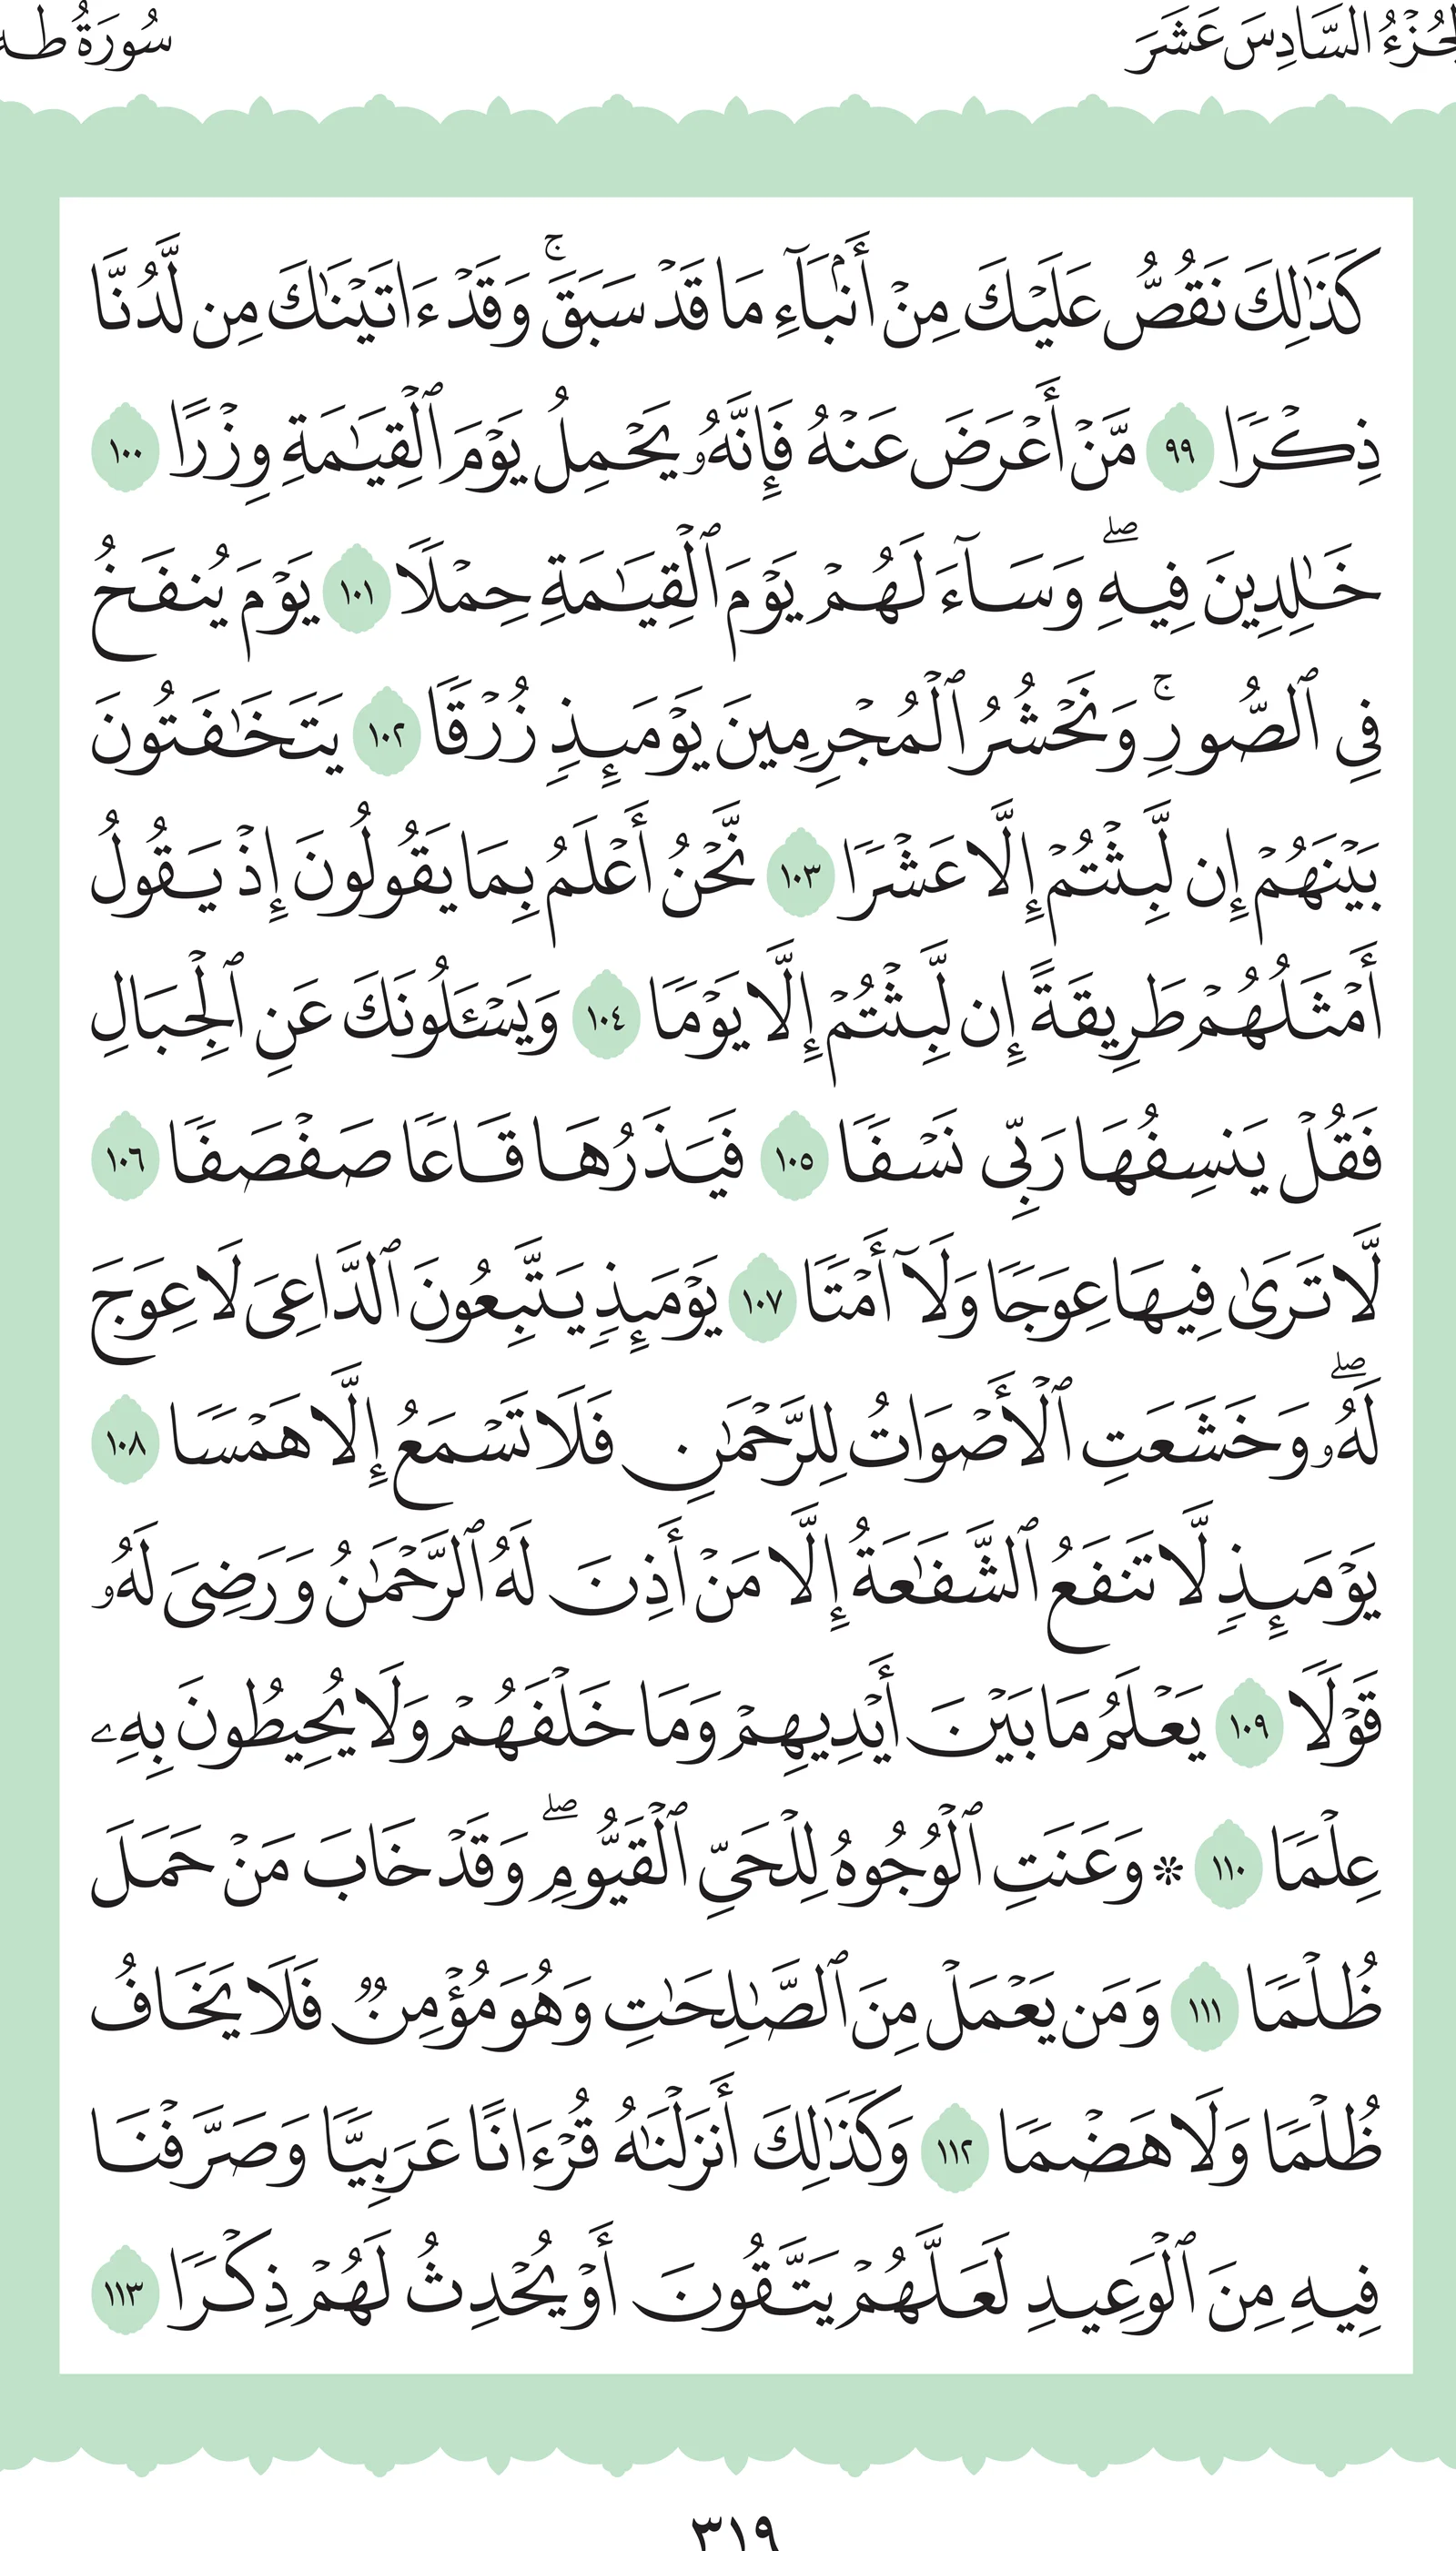 الجُزْءُ السَّادِسَ عَشَرَ سُورَةُ طه
كَذَٰلِكَ نَقُصُّ عَلَيْكَ مِنْ أَنۢبَآءِ مَا قَدْ سَبَقَۚ وَقَدْ ءَاتَيْنَٰكَ مِن لَّدُنَّا
ذِكْرًا ٩٩ مَّنْ أَعْرَضَ عَنْهُ فَإِنَّهُۥ يَحْمِلُ يَوْمَ ٱلْقِيَٰمَةِ وِزْرًا ١٠٠
خَٰلِدِينَ فِيهِۖ وَسَآءَ لَهُمْ يَوْمَ ٱلْقِيَٰمَةِ حِمْلًا ١٠١ يَوْمَ يُنفَخُ
فِى ٱلصُّورِۚ وَنَحْشُرُ ٱلْمُجْرِمِينَ يَوْمَئِذٍ زُرْقًا ١٠٢ يَتَخَٰفَتُونَ
بَيْنَهُمْ إِن لَّبِثْتُمْ إِلَّا عَشْرًا ١٠٣ نَّحْنُ أَعْلَمُ بِمَا يَقُولُونَ إِذْ يَقُولُ
أَمْثَلُهُمْ طَرِيقَةً إِن لَّبِثْتُمْ إِلَّا يَوْمًا ١٠٤ وَيَسْـَٔلُونَكَ عَنِ ٱلْجِبَالِ
فَقُلْ يَنسِفُهَا رَبِّى نَسْفًا ١٠٥ فَيَذَرُهَا قَاعًا صَفْصَفًا ١٠٦
لَّا تَرَىٰ فِيهَا عِوَجًا وَلَآ أَمْتًا ١٠٧ يَوْمَئِذٍ يَتَّبِعُونَ ٱلدَّاعِىَ لَا عِوَجَ
لَهُۥۖ وَخَشَعَتِ ٱلْأَصْوَاتُ لِلرَّحْمَٰنِ فَلَا تَسْمَعُ إِلَّا هَمْسًا ١٠٨
يَوْمَئِذٍ لَّا تَنفَعُ ٱلشَّفَٰعَةُ إِلَّا مَنْ أَذِنَ لَهُ ٱلرَّحْمَٰنُ وَرَضِىَ لَهُۥ
قَوْلًا ١٠٩ يَعْلَمُ مَا بَيْنَ أَيْدِيهِمْ وَمَا خَلْفَهُمْ وَلَا يُحِيطُونَ بِهِۦ
عِلْمًا ١١٠ ۞ وَعَنَتِ ٱلْوُجُوهُ لِلْحَىِّ ٱلْقَيُّومِۖ وَقَدْ خَابَ مَنْ حَمَلَ
ظُلْمًا ١١١ وَمَن يَعْمَلْ مِنَ ٱلصَّٰلِحَٰتِ وَهُوَ مُؤْمِنٌ فَلَا يَخَافُ
ظُلْمًا وَلَا هَضْمًا ١١٢ وَكَذَٰلِكَ أَنزَلْنَٰهُ قُرْءَانًا عَرَبِيًّا وَصَرَّفْنَا
فِيهِ مِنَ ٱلْوَعِيدِ لَعَلَّهُمْ يَتَّقُونَ أَوْ يُحْدِثُ لَهُمْ ذِكْرًا ١١٣
٣١٩